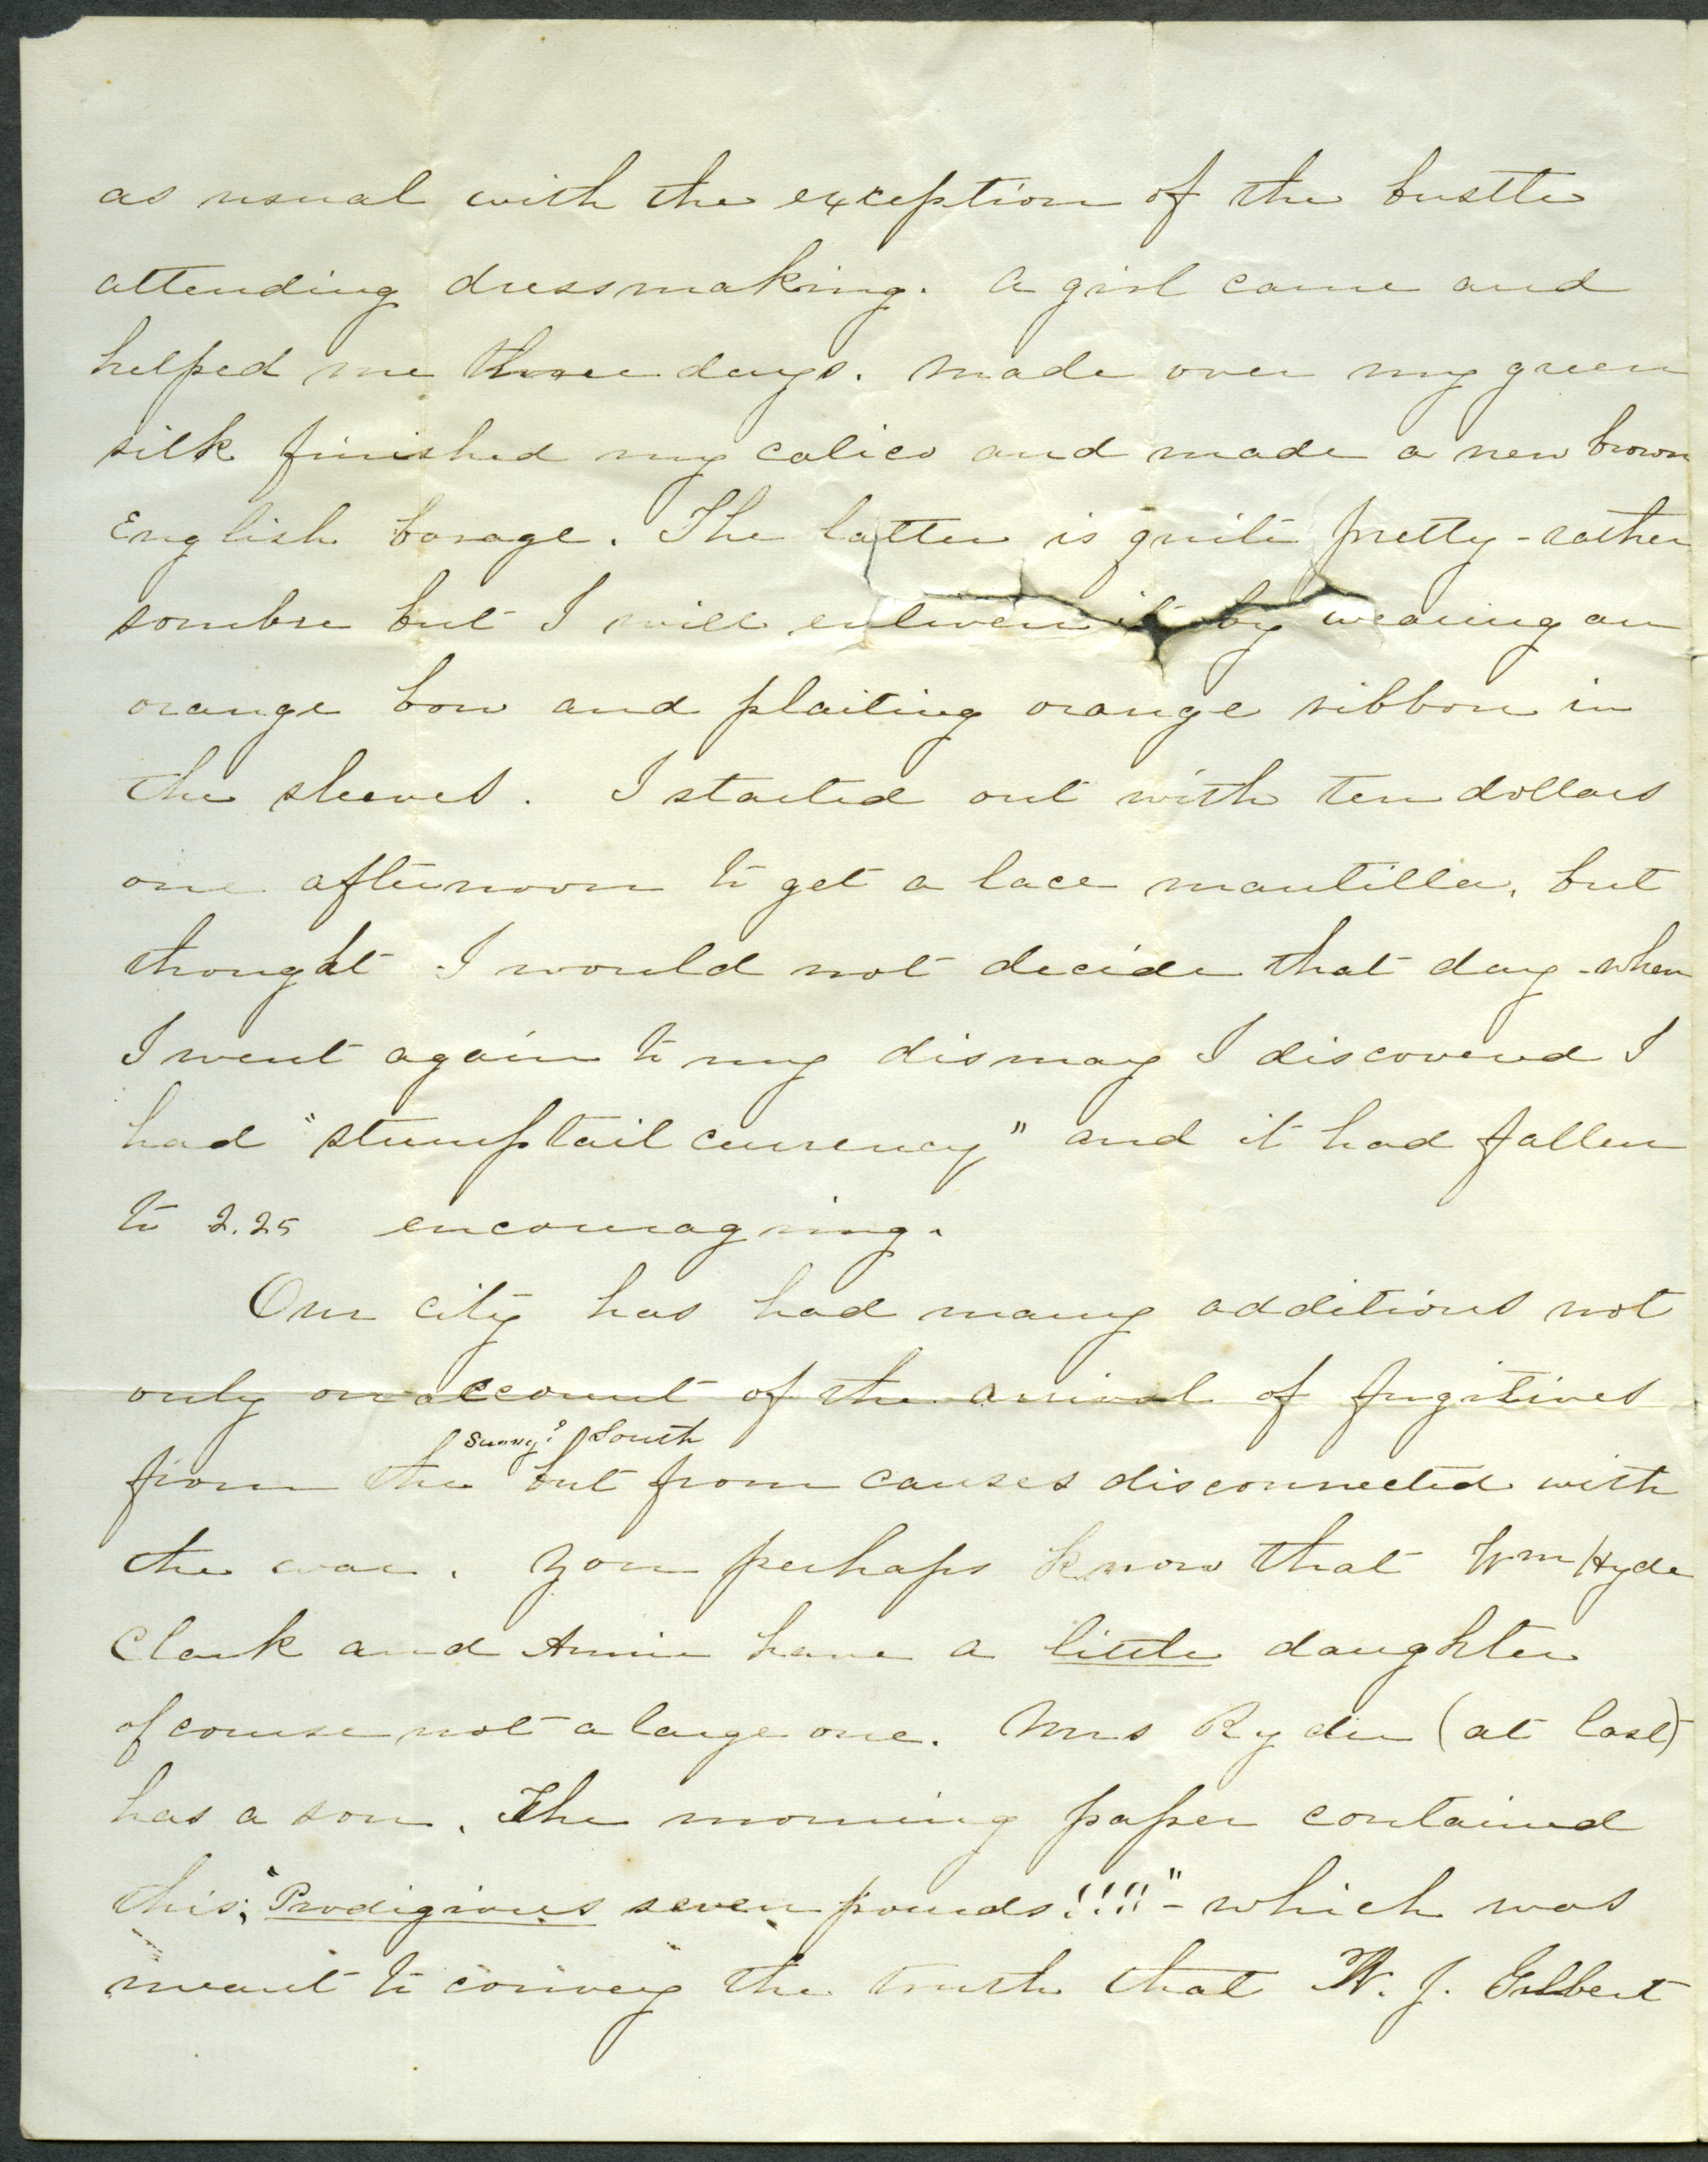 as usual with the exception of the bustle
attending dressmaking. A girl came and
helped me three days. Made over my green
silk finished my calico and made a new brown
English barage. The latter is quite pretty - rather
sombre but I will enliven it by wearing an
orange bow and plaiting orange ribbon in
the sleeves. I started out with ten dollars
one afternoon to get a lace mantilla, but
thought I would not decide that day - when
I went again to my dismay I discovered I
had "stumptail currency" and it had fallen
to 2.25 encouraging.
Our city has had many additions not
only on account of the arrival of fugitives
sunny? South
from the but from causes disconnected with
the war. You perhaps know that Wm Hyde
Clark and Annie have a little daughter
of course not a large one. Mrs Ryder (at last)
has a son. The morning paper contained
this; "Prodigious seven pounds!!!!" - which was
meant to convey the truth that W. J. Gilbert